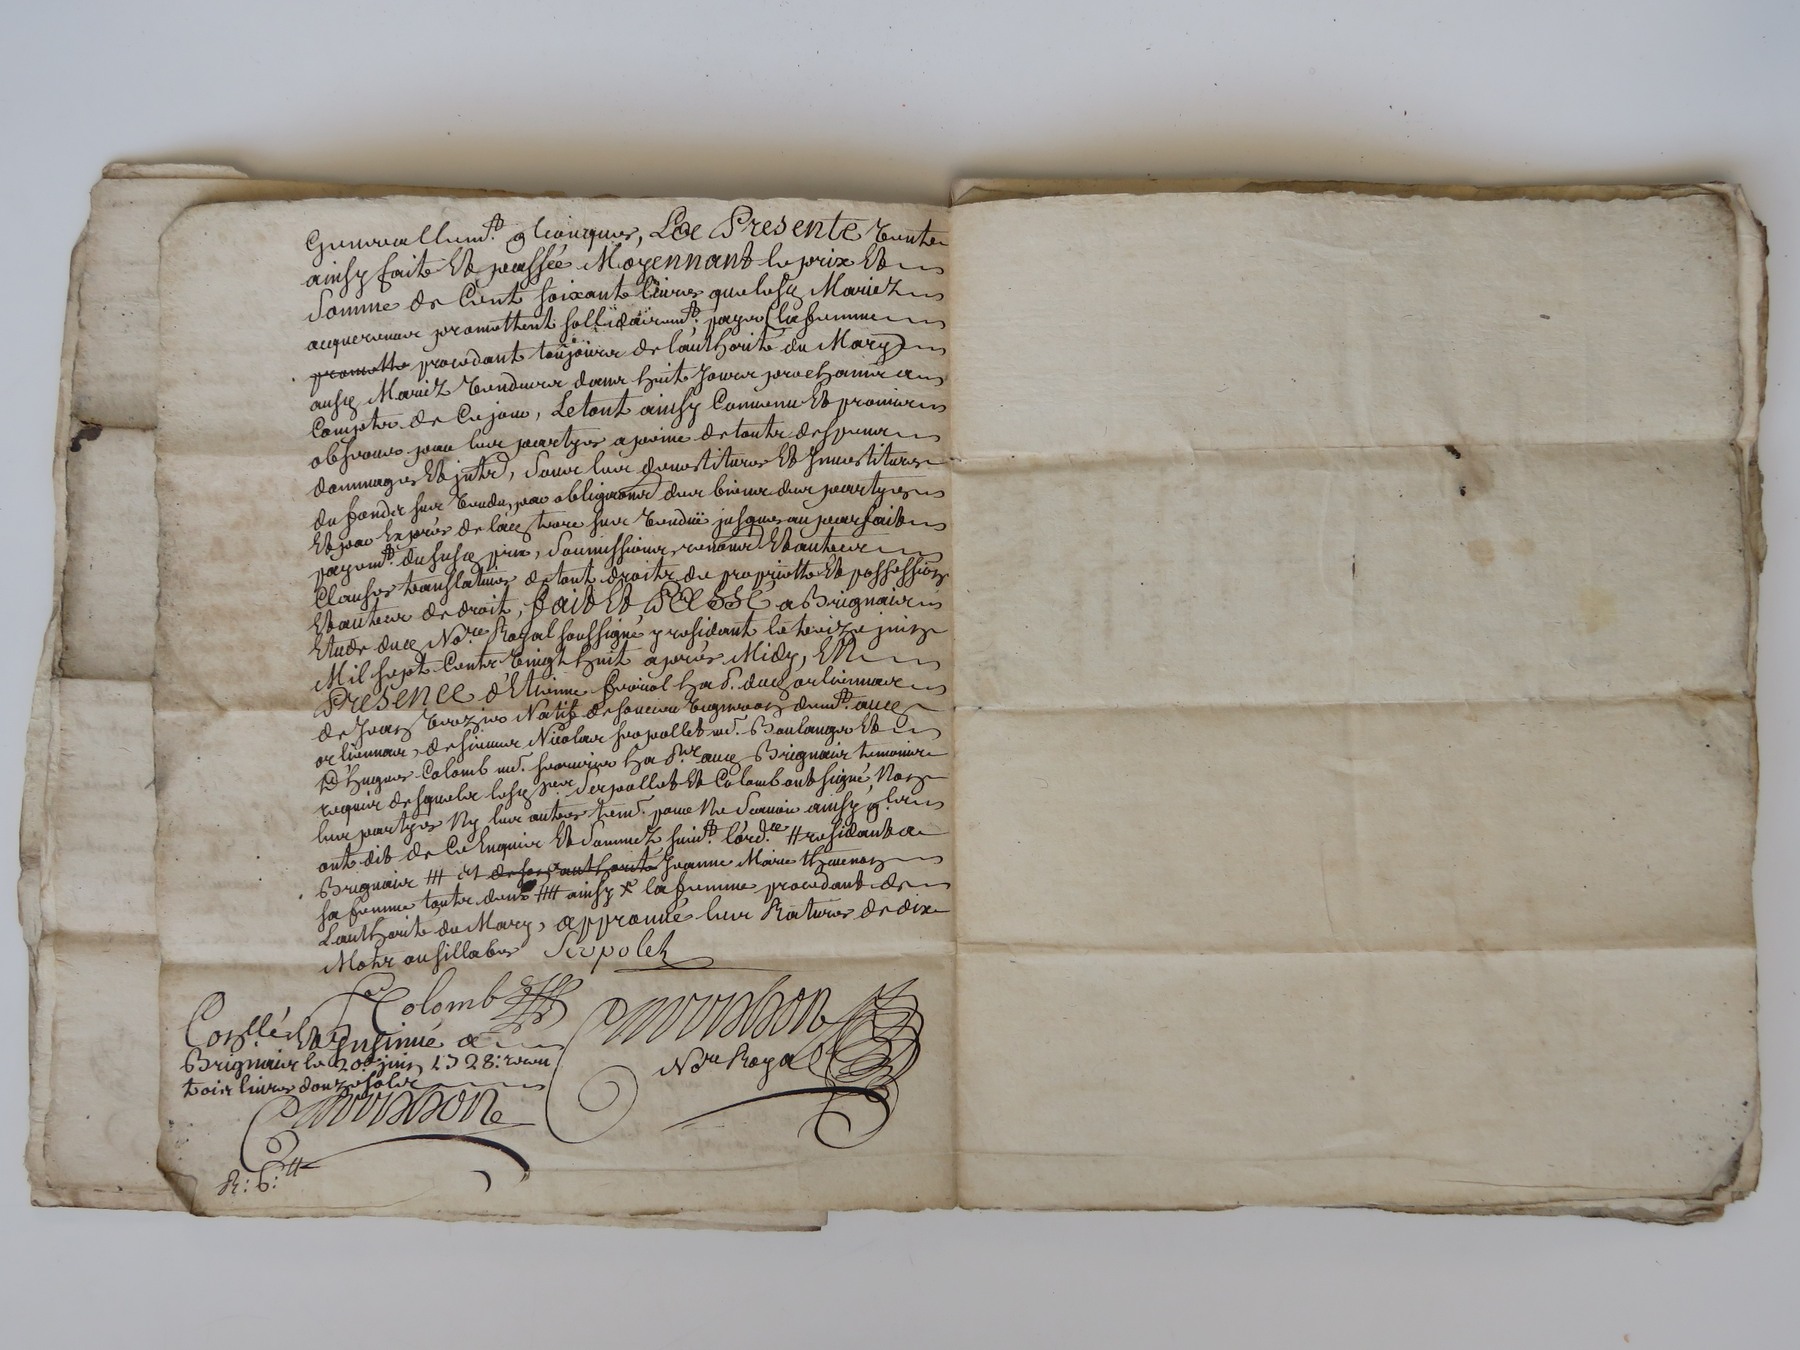 Generallem.t q̃lconques, La Presente Vente
ainsy faite Et passée Moyennant le prix Et
Somme de Cent soixante livres que lesd Mariez
acquereurs promettent sollidairem.t payer (la femme
promette procedant toujours de l'authorité du Mary)
ausd Mariez Vendeurs dans huit Jours prochains a
Compter de Ce jour, Le tout ainsy Convenu Et promis
observer par les partyes a peine de toute despens
dommages Et jnter, Sous les devestitures Et Jnvestitures
du fonds sus Vendu, par obligaōns des biens des partyes
Et par Exprés de lad terre sus Venduë jusques au parfait
payem.t du susd prix, Soumissions, renonc Et autres
Clauses translatives de tout droits de proprietté Et possession
Et autres de droit, fait Et PASSÉ a Brignais
Etude dud No.re Royal soussigné y residant le treize juin
Mil sept Cents Vingt huit aprés Midy, EN
PRESENCE d'Etienne ha.t dud orliennas
de Jean Natif de Vigneron demt. aud
orliennas, de sieurs Nicolas Serpollet m.d Boulanger Et
D'hugues Colomb m.d ha.ts aud Brignais temoins
requis desquels lesd srs Serpollet Et Colomb ont signé, Non
les partyes Ny les autres tem. pour Ne Scavoir ainsy q̃ls
ont dit de Ce Enquis Et Sommez suiv.t l'ord.ce # residant a
Brignais ## et de son authorité Jeanne Marie thevenon
sa femme toute deux ### ainsy x la femme procedant de
L'authorité du Mary, approuvé les Ratures de dix
Mots ou sillabes Serpolet
Colomb
No.re Royal
Con.llé Et Insinué a
Brignais le 20e juin 1728: receu
trois livres douze sols
R: 6:tt